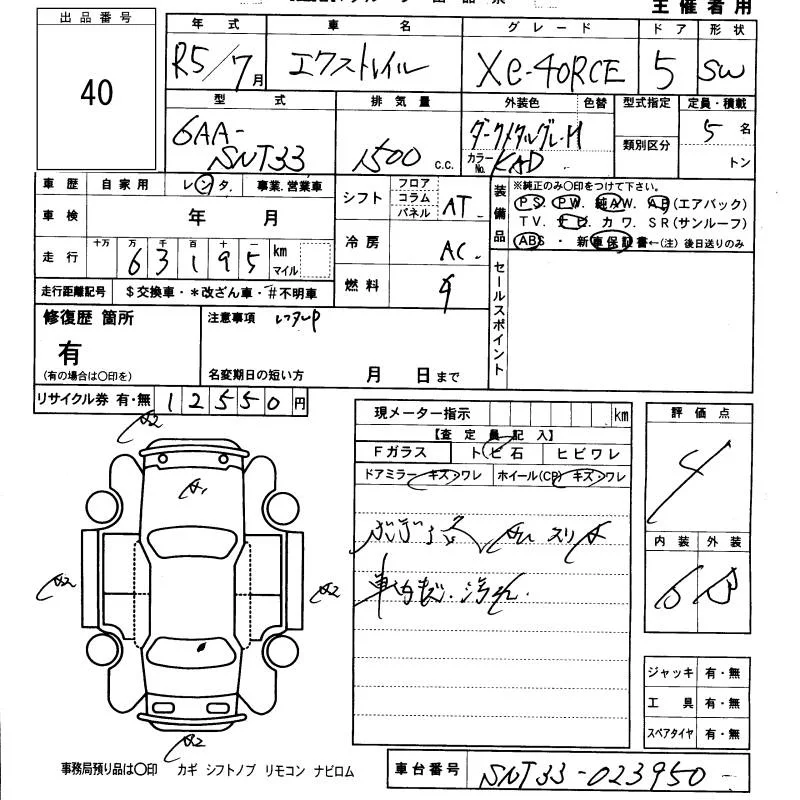 主催者用
出品番号
40
年式 車名 グレード ドア 形状
R5/7月 エクストレイル Xe-4ORCE 5 SW
型式 排気量 外装色 色替 型式指定 定員・積載
6AA-SNT33 1500 c.c. ダークメタルグレーM 類別区分 5名
カラーNo. KAD トン
車歴 自家用 レンタ. 事業.営業車
車検 年 月
走行 十万 万 千 百 十 一 km マイル
63195
走行距離記号 $交換車・*改ざん車・#不明車
シフト フロア コラム パネル AT
冷房 AC
燃料
装備品 ※純正のみ〇印をつけて下さい。
PS. PW. 純AW. AB(エアバック)
TV. ナビ. カワ. SR(サンルーフ)
ABS・新車保証書←(注)後日送りのみ
セールスポイント
修復歴 箇所
有
(有の場合は〇印を)
注意事項 レンタUP
名変期日の短い方 月 日まで
リサイクル券 有・無 12550円
現メーター指示 km
【査定員記入】
Fガラス トビ石 ヒビワレ
ドアミラー キズ・ワレ ホイール(CP) キズ・ワレ
車内キズ・汚れ
評価点
4
内装 外装
A2
A1
A2 A2
A2
ジャッキ 有・無
工具 有・無
スペアタイヤ 有・無
事務局預り品は〇印 カギ シフトノブ リモコン ナビロム
車台番号 SNT33-023950